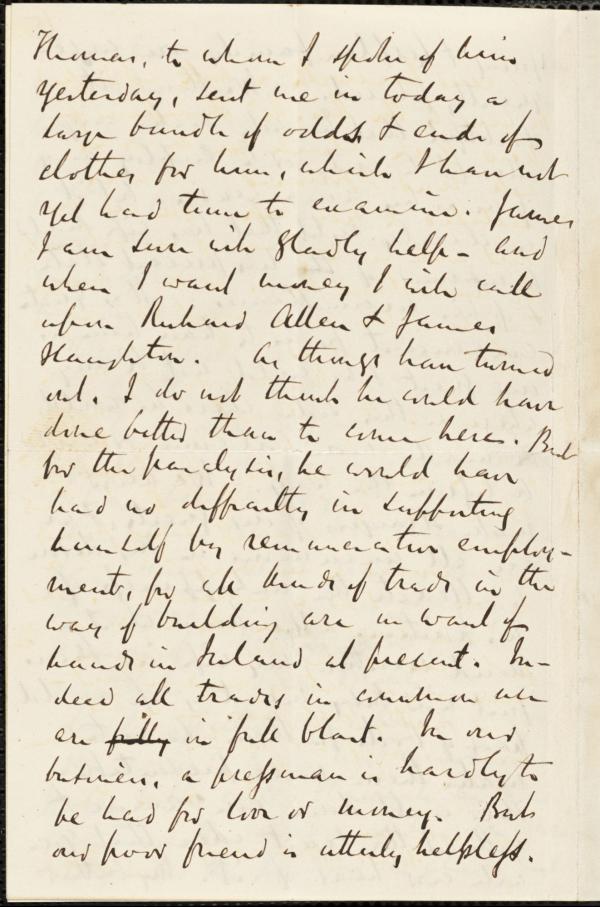 Thomas, to whom I spoke of him
yesterday, sent me in today a
large bundle of odds & ends of
clothes for him, which I have not
yet had time to examine. James
I am sure will gladly help - and
when I want money I will call
upon Richard Allen & James
Haughton. As things have turned
out, I do not think he could have
done better than to come here. But
for the paralysis, he would have
had no difficulty in supporting
himself by remunerative employ-
ment, for all kinds of trades in the
way of building are in want of
hands in Ireland at present. In-
deed all trades in common use
are fully in full blast. In our
business, a pressman is hardly to
be had for love or money. But
our poor friend is utterly helpless.